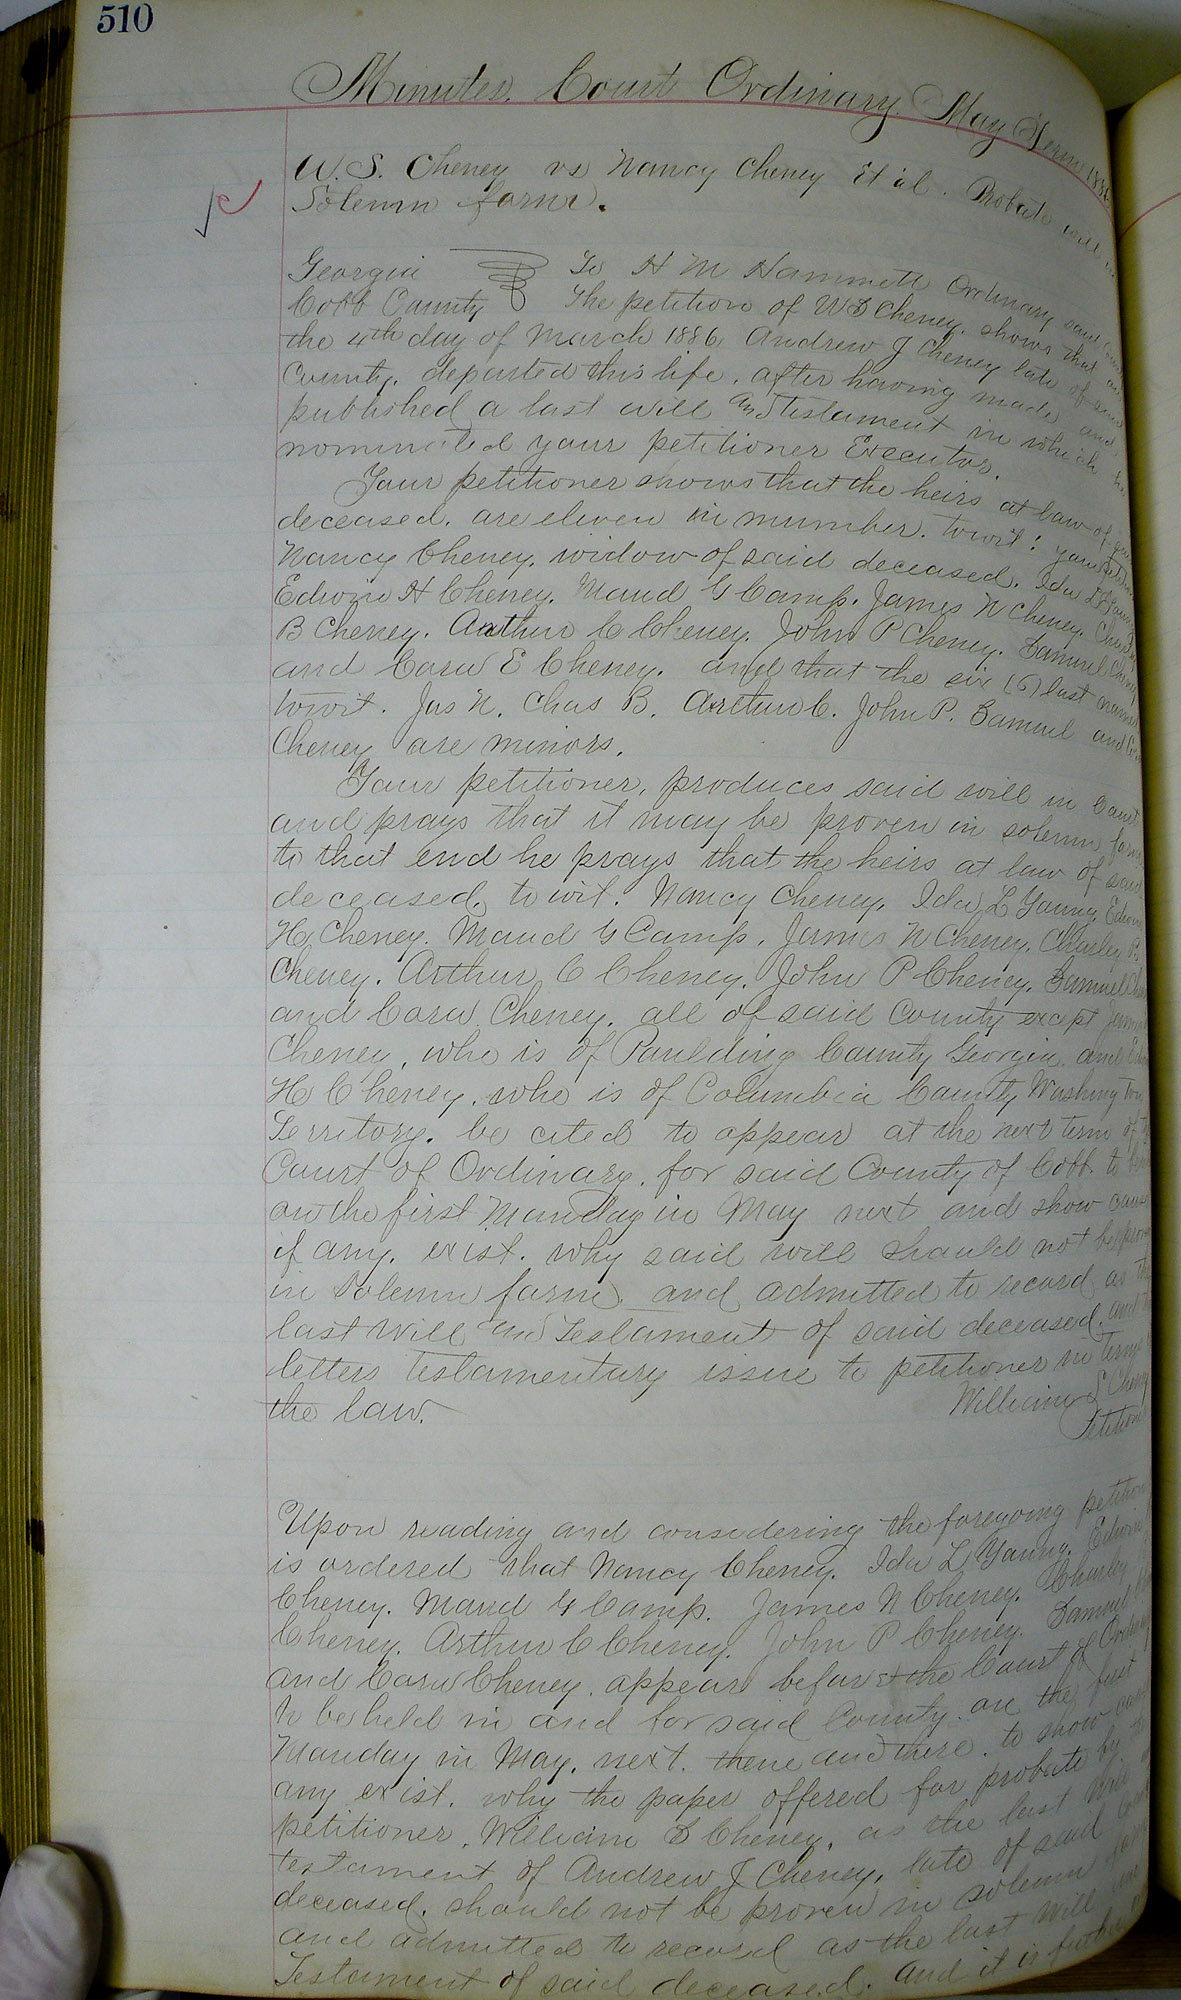 510
Minutes. Court Ordinary May Term 188
W. S. Cheney vs Nancy Cheney Et al. Probate will in
Solemn form.
Georgia To H M Hammett Ordinary said
Cobb County The petition of W S Cheney. shows that on
the 4th day of March 1886 Andrew J Cheney late of said
County. departed this life. after having made and
published a last will and Testament in which he
nominated your petitioner Executor.
Your petitioner shows that the heirs at law of
deceased. are eleven in number. towit: your
Nancy Cheney. widow of said deceased. Ida L Young
Edwin H Cheney. Maud G Camp. James N Cheney. Charley
B Cheney. Arthur C Cheney. John P Cheney. Samuel Cheney
and Cora E Cheney. and that the six (6) last named
towit. Jas N. Chas B. Arthur C. John P. Samuel and
Cheney are minors.
Your petitioner, produces said will in Court
and prays that it may be proven in solemn form
to that end he prays that the heirs at law of said
deceased. to wit. Nancy Cheney. Ida L Young Edwin
H Cheney. Maud G Camp. James N Cheney. Charley B
Cheney. Arthur C Cheney. John P Cheney. Samuel
and Cora Cheney. all of said County except James
Cheney, who is of Paulding County Georgia. and
H Cheney. who is of Columbia County Washington
Territory. be cited to appear at the next term of
Court of Ordinary. for said County of Cobb. to
on the first Monday in May next and show cause
if any. exist. why said will should not be proven
in solemn form and admitted to record as the
last will and Testament of said deceased. and
letters testamentary issue to petitioner in terms
the law.
William S Cheney
Petitioner
Upon reading and considering the foregoing petition
is ordered that Nancy Cheney. Ida L Young. Edwin
Cheney. Maud G Camp. James N Cheney. Charley
Cheney. Arthur C Cheney. John P Cheney. Samuel
and Cora Cheney. appear before the Court of Ordinary
to be held in and for said County. on the first
Monday in May. next. thene and there. to show cause
any exist. why the paper offered for probate by
petitioner. William S Cheney. as the last Will
testament of Andrew J Cheney. late of said
deceased. should not be proven in solemn form
and admitted to record as the last Will and
Testament of said deceased. And it is further